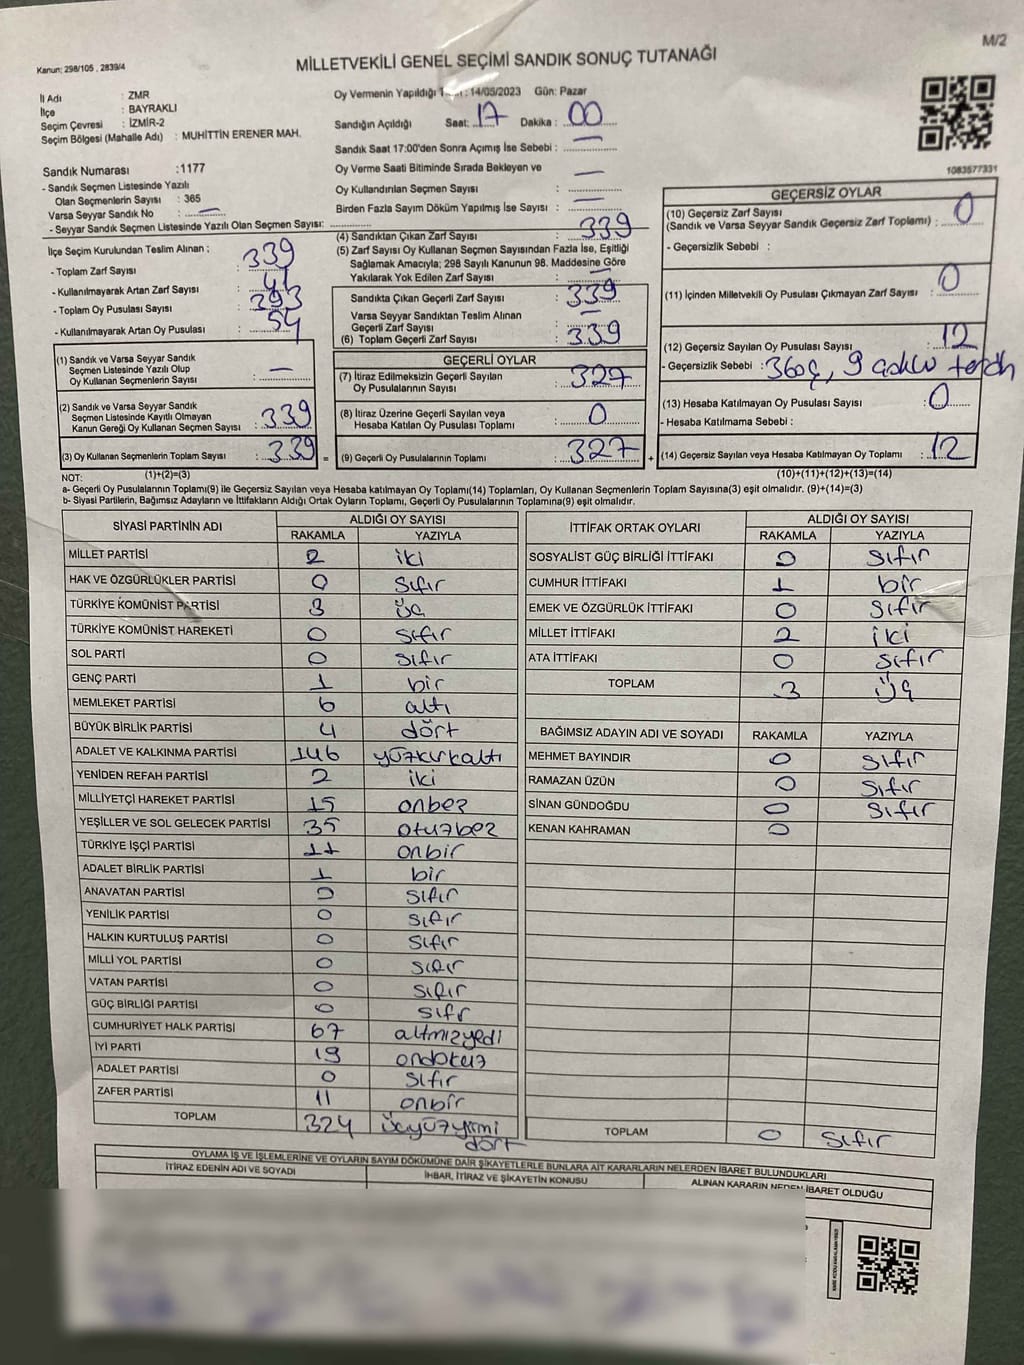 M/2
Kanun: 298/105 , 2839/4
MİLLETVEKİLİ GENEL SEÇİMİ SANDIK SONUÇ TUTANAĞI
İl Adı : ZMR
İlçe : BAYRAKLI
Seçim Çevresi : İZMİR-2
Seçim Bölgesi (Mahalle Adı) : MUHİTTİN ERENER MAH.
Sandık Numarası :1177
- Sandık Seçmen Listesinde Yazılı
Olan Seçmenlerin Sayısı : 365
Varsa Seyyar Sandık No : —
- Seyyar Sandık Seçmen Listesinde Yazılı Olan Seçmen Sayısı:
Oy Vermenin Yapıldığı : 14/05/2023 Gün: Pazar
Sandığın Açıldığı Saat: 17 Dakika : 00
Sandık Saat 17:00'den Sonra Açımış İse Sebebi : —
Oy Verme Saati Bitiminde Sırada Bekleyen ve
Oy Kullandırılan Seçmen Sayısı : —
Birden Fazla Sayım Döküm Yapılmış İse Sayısı : —
1083577331
İlçe Seçim Kurulundan Teslim Alınan :
- Toplam Zarf Sayısı : 339
- Kullanılmayarak Artan Zarf Sayısı :
- Toplam Oy Pusulası Sayısı : 393
- Kullanılmayarak Artan Oy Pusulası : 54
(1) Sandık ve Varsa Seyyar Sandık
Seçmen Listesinde Yazılı Olup
Oy Kullanan Seçmenlerin Sayısı : —
(2) Sandık ve Varsa Seyyar Sandık
Seçmen Listesinde Kayıtlı Olmayan
Kanun Gereği Oy Kullanan Seçmen Sayısı : 339
(3) Oy Kullanan Seçmenlerin Toplam Sayısı : 339 =
(4) Sandıktan Çıkan Zarf Sayısı : 339
(5) Zarf Sayısı Oy Kullanan Seçmen Sayısından Fazla İse, Eşitliği
Sağlamak Amacıyla; 298 Sayılı Kanunun 98. Maddesine Göre
Yakılarak Yok Edilen Zarf Sayısı : —
Sandıkta Çıkan Geçerli Zarf Sayısı : 339
Varsa Seyyar Sandıktan Teslim Alınan
Geçerli Zarf Sayısı : —
(6) Toplam Geçerli Zarf Sayısı : 339
GEÇERLİ OYLAR
(7) İtiraz Edilmeksizin Geçerli Sayılan
Oy Pusulalarının Sayısı : 327
(8) İtiraz Üzerine Geçerli Sayılan veya
Hesaba Katılan Oy Pusulası Toplamı : 0
(9) Geçerli Oy Pusulalarının Toplamı : 327 +
GEÇERSİZ OYLAR
(10) Geçersiz Zarf Sayısı
(Sandık ve Varsa Seyyar Sandık Geçersiz Zarf Toplamı) : 0
- Geçersizlik Sebebi :
(11) İçinden Milletvekili Oy Pusulası Çıkmayan Zarf Sayısı : 0
(12) Geçersiz Sayılan Oy Pusulası Sayısı : 12
- Geçersizlik Sebebi :
(13) Hesaba Katılmayan Oy Pusulası Sayısı : 0
- Hesaba Katılmama Sebebi :
(14) Geçersiz Sayılan veya Hesaba Katılmayan Oy Toplamı : 12
NOT: (1)+(2)=(3) (10)+(11)+(12)+(13)=(14)
a- Geçerli Oy Pusulalarının Toplamı(9) ile Geçersiz Sayılan veya Hesaba katılmayan Oy Toplamı(14) Toplamları, Oy Kullanan Seçmenlerin Toplam Sayısına(3) eşit olmalıdır. (9)+(14)=(3)
b- Siyasi Partilerin, Bağımsız Adayların ve İttifakların Aldığı Ortak Oyların Toplamı, Geçerli Oy Pusulalarının Toplamına(9) eşit olmalıdır.
SİYASİ PARTİNİN ADI ALDIĞI OY SAYISI
RAKAMLA YAZIYLA
MİLLET PARTİSİ 2 iki
HAK VE ÖZGÜRLÜKLER PARTİSİ 0 sıfır
TÜRKİYE KOMÜNİST PARTİSİ 3 üç
TÜRKİYE KOMÜNİST HAREKETİ 0 sıfır
SOL PARTİ 0 sıfır
GENÇ PARTİ 1 bir
MEMLEKET PARTİSİ 6 altı
BÜYÜK BİRLİK PARTİSİ 4 dört
ADALET VE KALKINMA PARTİSİ 146 yüzkırkaltı
YENİDEN REFAH PARTİSİ 2 iki
MİLLİYETÇİ HAREKET PARTİSİ 15 onbeş
YEŞİLLER VE SOL GELECEK PARTİSİ 35 otuzbeş
TÜRKİYE İŞÇİ PARTİSİ 11 onbir
ADALET BİRLİK PARTİSİ 1 bir
ANAVATAN PARTİSİ 0 sıfır
YENİLİK PARTİSİ 0 sıfır
HALKIN KURTULUŞ PARTİSİ 0 sıfır
MİLLİ YOL PARTİSİ 0 sıfır
VATAN PARTİSİ 0 sıfır
GÜÇ BİRLİĞİ PARTİSİ 0 sıfr
CUMHURİYET HALK PARTİSİ 67 altmışyedi
İYİ PARTİ 19 ondokuz
ADALET PARTİSİ 0 sıfır
ZAFER PARTİSİ 11 onbir
TOPLAM 324 üçyüzyirmi
dört
İTTİFAK ORTAK OYLARI ALDIĞI OY SAYISI
RAKAMLA YAZIYLA
SOSYALİST GÜÇ BİRLİĞİ İTTİFAKI 0 sıfır
CUMHUR İTTİFAKI 1 bir
EMEK VE ÖZGÜRLÜK İTTİFAKI 0 sıfır
MİLLET İTTİFAKI 2 iki
ATA İTTİFAKI 0 sıfır
TOPLAM 3 üç
BAĞIMSIZ ADAYIN ADI VE SOYADI RAKAMLA YAZIYLA
MEHMET BAYINDIR 0 sıfır
RAMAZAN ÜZÜN 0 sıfır
SİNAN GÜNDOĞDU 0 sıfır
KENAN KAHRAMAN 0
TOPLAM 0 sıfır
OYLAMA İŞ VE İŞLEMLERİNE VE OYLARIN SAYIM DÖKÜMÜNE DAİR ŞİKAYETLERLE BUNLARA AİT KARARLARIN NELERDEN İBARET BULUNDUKLARI
İTİRAZ EDENİN ADI VE SOYADI İHBAR, İTİRAZ VE ŞİKAYETİN KONUSU ALINAN KARARIN NEDEN İBARET OLDUĞU